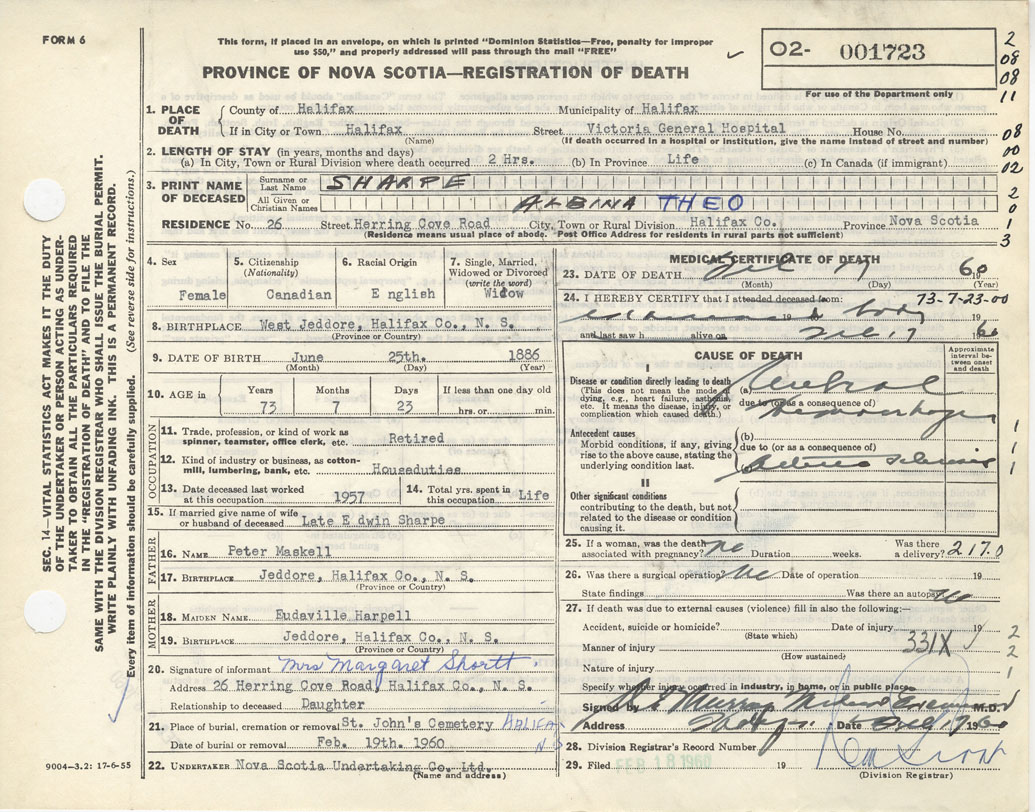 FORM 6
This form, if placed in an envelope, on which is printed "Dominion Statistics—Free, penalty for improper
use $50," and properly addressed will pass through the mail "FREE"
O2- 001723
For use of the Department only
PROVINCE OF NOVA SCOTIA—REGISTRATION OF DEATH
2
08
08
11
08
00
02
2
0
1
3
SEC. 14—VITAL STATISTICS ACT MAKES IT THE DUTY
OF THE UNDERTAKER OR PERSON ACTING AS UNDER-
TAKER TO OBTAIN ALL THE PARTICULARS REQUIRED
IN THE "REGISTRATION OF DEATH" AND TO FILE THE
SAME WITH THE DIVISION REGISTRAR WHO SHALL ISSUE THE BURIAL PERMIT.
WRITE PLAINLY WITH UNFADING INK. THIS IS A PERMANENT RECORD.
Every item of information should be carefully supplied. (See reverse side for instructions.)
1. PLACE OF DEATH
County of Halifax Municipality of Halifax
If in City or Town Halifax Street Victoria General Hospital House No.
(Name) (If death occurred in a hospital or institution, give the name instead of street and number)
2. LENGTH OF STAY (in years, months and days)
(a) In City, Town or Rural Division where death occurred 2 Hrs. (b) In Province Life (c) In Canada (if immigrant)
3. PRINT NAME OF DECEASED
Surname or Last Name SHARPE
All Given or Christian Names ALBINA THEO
RESIDENCE No. 26 Street Herring Cove Road City, Town or Rural Division Halifax Co. Province Nova Scotia
(Residence means usual place of abode. Post Office Address for residents in rural parts not sufficient)
4. Sex
Female
5. Citizenship
(Nationality)
Canadian
6. Racial Origin
E nglish
7. Single, Married,
Widowed or Divorced
(write the word)
Widow
8. BIRTHPLACE West Jeddore, Halifax Co., N. S.
(Province or Country)
9. DATE OF BIRTH June 25th. 1886
(Month) (Day) (Year)
10. AGE in
Years Months Days If less than one day old
73 7 23 hrs. or min.
OCCUPATION
11. Trade, profession, or kind of work as
spinner, teamster, office clerk, etc. Retired
12. Kind of industry or business, as cotton-
mill, lumbering, bank, etc. Houseduties
13. Date deceased last worked
at this occupation 1957
14. Total yrs. spent in
this occupation Life
15. If married give name of wife
or husband of deceased Late E dwin Sharpe
FATHER
16. NAME Peter Maskell
17. BIRTHPLACE Jeddore, Halifax Co., N. S.
(Province or Country)
MOTHER
18. MAIDEN NAME Eudaville Harpell
19. BIRTHPLACE Jeddore, Halifax Co., N. S.
(Province or Country)
20. Signature of informant Mrs Margaret Shortt
Address 26 Herring Cove Road, Halifax Co., N. S.
Relationship to deceased Daughter
21. Place of burial, cremation or removal St. John's Cemetery HALIFAX
Date of burial or removal Feb. 19th. 1960 N.S
22. UNDERTAKER Nova Scotia Undertaking Co. Ltd.
(Name and address)
9004—3.2: 17-6-55
MEDICAL CERTIFICATE OF DEATH
23. DATE OF DEATH Feb 17 1960
(Month) (Day) (Year)
73-7-23-00
24. I HEREBY CERTIFY that I attended deceased from:
body
19 19
and last saw h alive on Feb 17 1960
CAUSE OF DEATH
Approximate
interval be-
tween onset
and death
I
Disease or condition directly leading to death
(This does not mean the mode of
dying, e.g., heart failure, asthenia,
etc. It means the disease, injury, or
complication which caused death.)
(a) Cerebral
due to (or as a consequence of)
Hemorrhage
Antecedent causes
Morbid conditions, if any, giving
rise to the above cause, stating the
underlying condition last.
(b)
due to (or as a consequence of)
1
1
1
II
Other significant conditions
contributing to the death, but not
related to the disease or condition
causing it.
25. If a woman, was the death
associated with pregnancy? No Duration weeks. Was there
a delivery? 217.0
26. Was there a surgical operation? No Date of operation 19
State findings Was there an autopsy No
27. If death was due to external causes (violence) fill in also the following:—
Accident, suicide or homicide? Date of injury 19
(State which)
Manner of injury 331X
(How sustained)
Nature of injury
2
2
1
Specify whether injury occurred in industry, in home, or in public place
Signed by M.D.
Address Date Feb 17 1960
28. Division Registrar's Record Number
29. Filed FEB 18 1960 19
(Division Registrar)